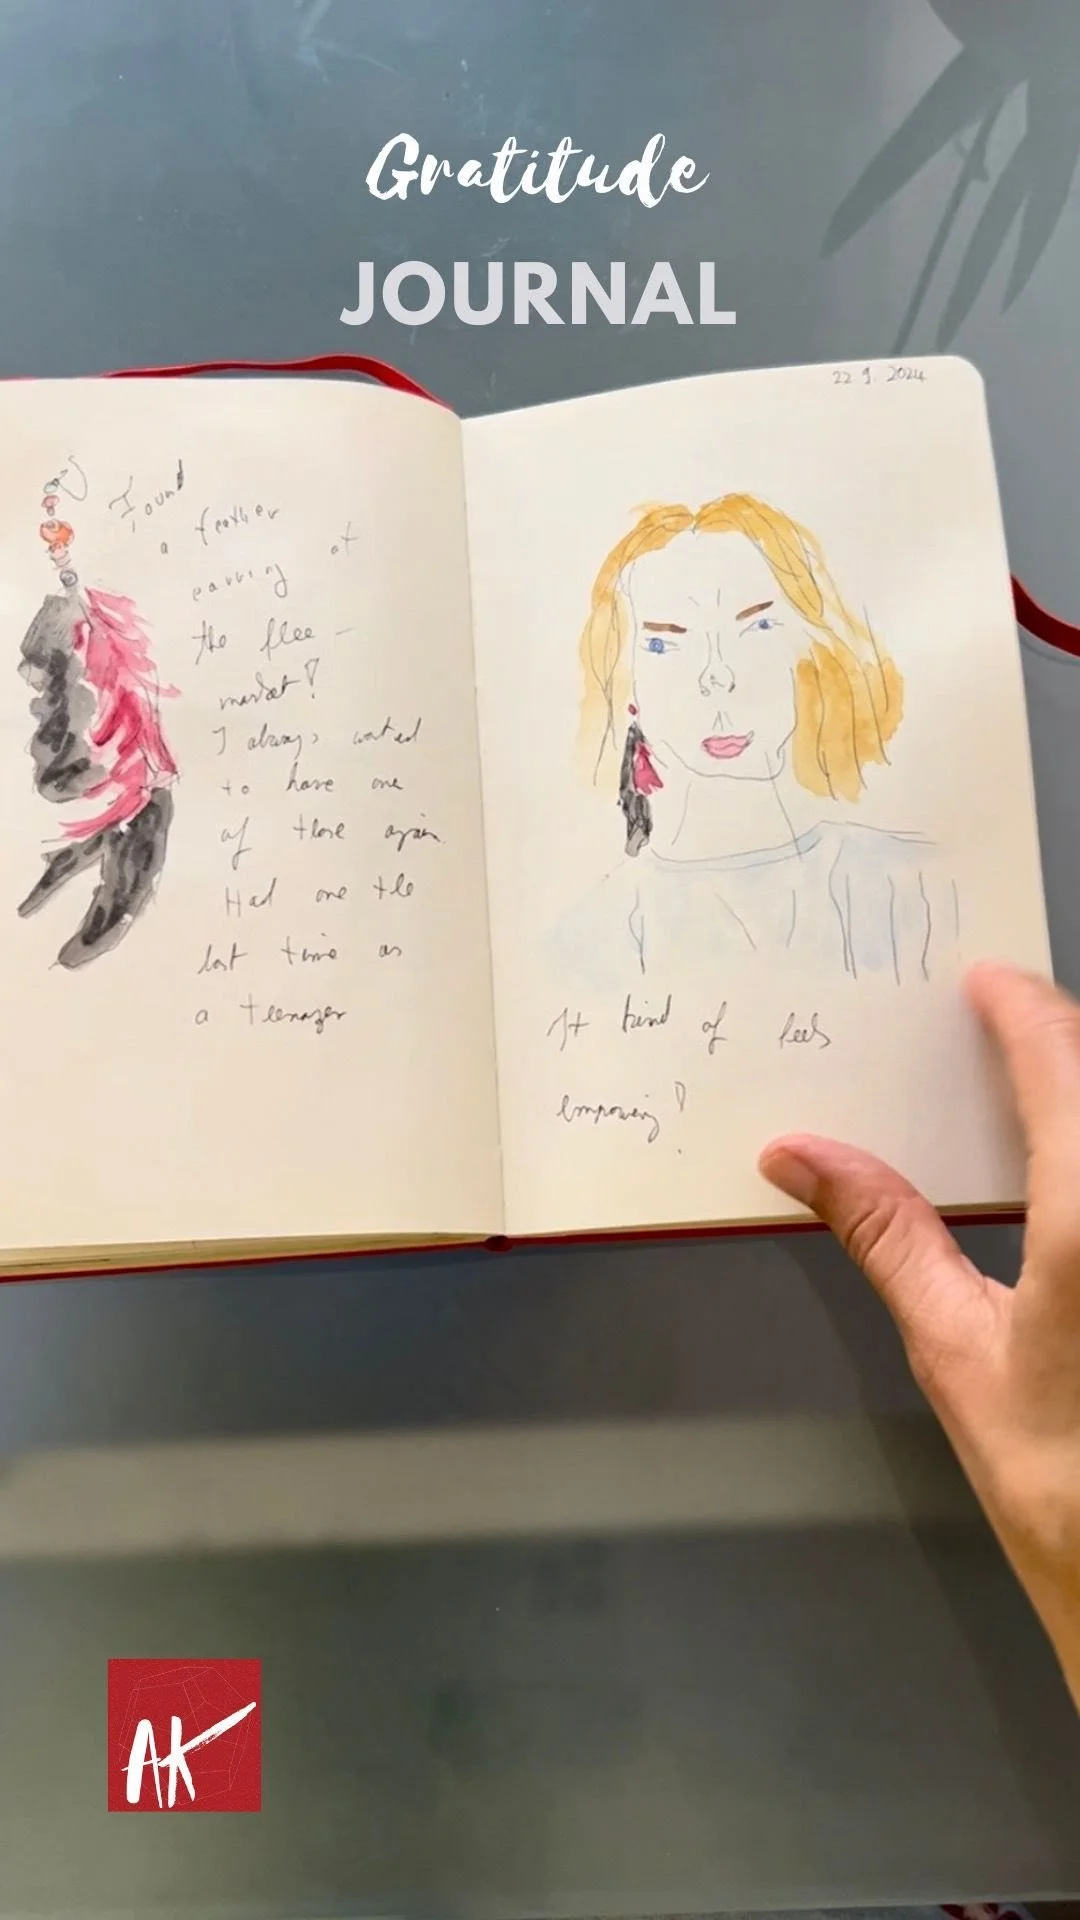 Gratitude
JOURNAL
Found
a feather
earring at
the flee-
market!
I always wanted
to have one
of those again.
Had one the
last time as
a teenager
22 9. 2024
It kind of feels
empowering!
AK